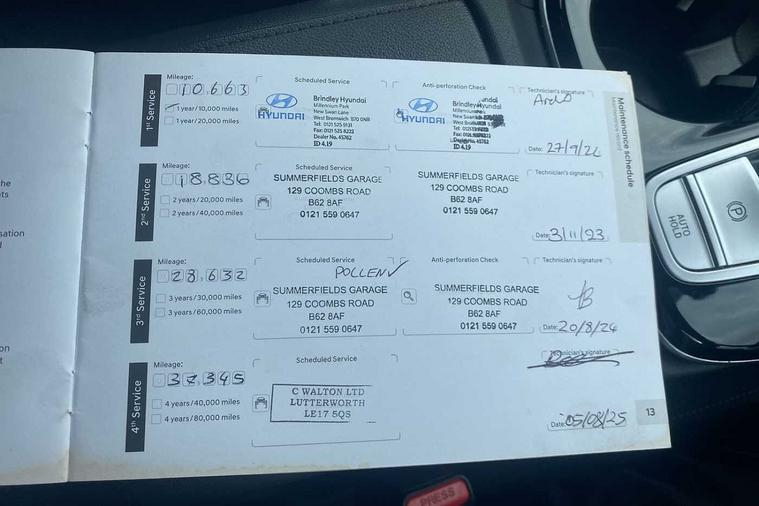 he
ts
sation
d
on
t
1st Service
Mileage:
10,663
1 year/10,000 miles
1 year/20,000 miles
Scheduled Service
HYUNDAI
Brindley Hyundai
Millennium Park
New Swan Lane
West Bromwich B70 0NR
Tel: 0121 525 9131
Fax: 0121 525 8222
Dealer No. 45762
ID 4.19
Anti-perforation Check
HYUNDAI
Brindley Hyundai
Millennium
New Swan
West Brom
Tel: 0121
Fax: 0121
Dealer No. 45762
ID 4.19
Technician's signature
Date: 27/9/22
Maintenance schedule
Maintenance record
2nd Service
Mileage:
18,836
2 years/20,000 miles
2 years/40,000 miles
Scheduled Service
SUMMERFIELDS GARAGE
129 COOMBS ROAD
B62 8AF
0121 559 0647
SUMMERFIELDS GARAGE
129 COOMBS ROAD
B62 8AF
0121 559 0647
Technician's signature
Date: 3/11/23
3rd Service
Mileage:
28,632
3 years/30,000 miles
3 years/60,000 miles
Scheduled Service
POLLEN ✓
SUMMERFIELDS GARAGE
129 COOMBS ROAD
B62 8AF
0121 559 0647
Anti-perforation Check
SUMMERFIELDS GARAGE
129 COOMBS ROAD
B62 8AF
0121 559 0647
Technician's signature
Date: 20/8/24
4th Service
Mileage:
37,345
4 years/40,000 miles
4 years/80,000 miles
Scheduled Service
C WALTON LTD
LUTTERWORTH
LE17 5QS
Technician's signature
Date: 05/08/25
13
AUTO
HOLD
P
PRESS